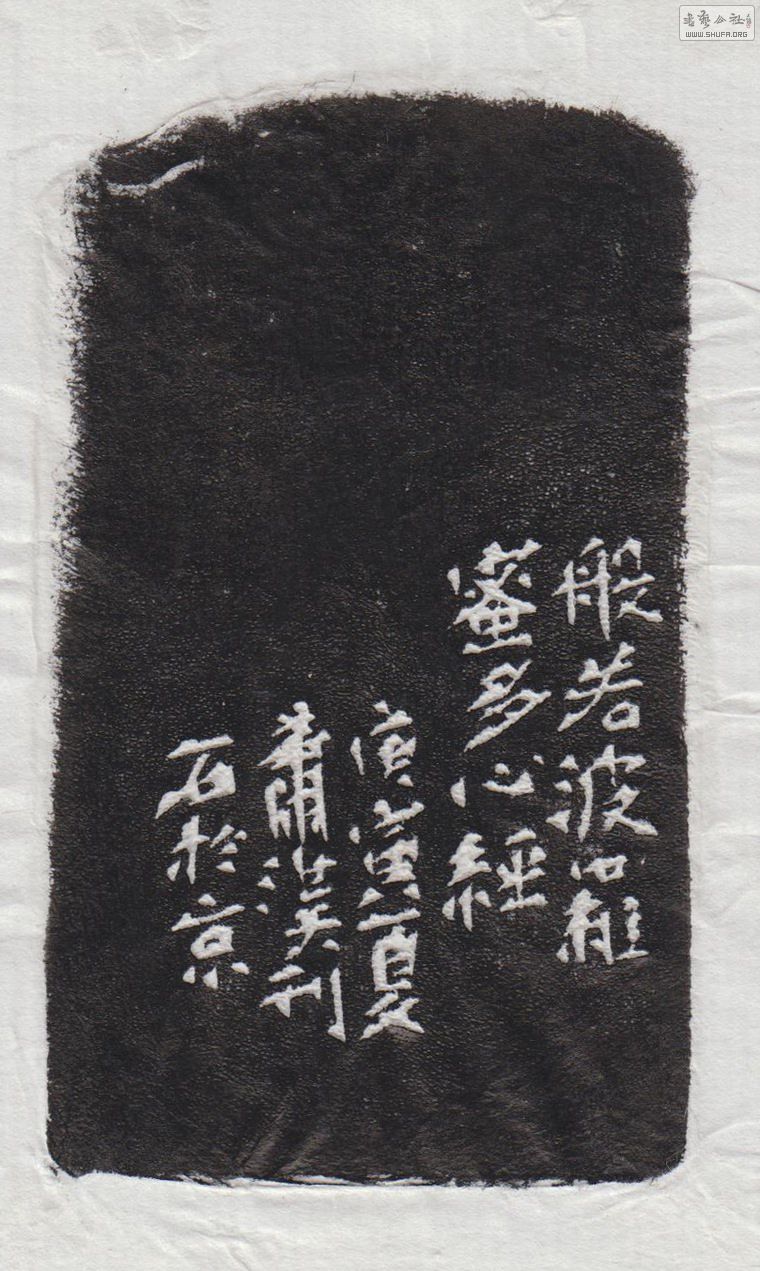 般若波羅
蜜多心經
庚寅夏
蕭明洪刊
石於京
書藝公社
WWW.SHUFA.ORG